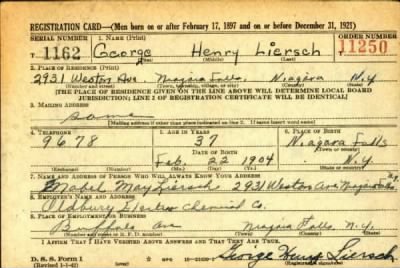 REGISTRATION CARD—(Men born on or after February 17, 1897 and on or before December 31, 1921)
SERIAL NUMBER 1. NAME (Print) ORDER NUMBER
T 1162 George Henry Liersch 11250
(First) (Middle) (Last)
2. PLACE OF RESIDENCE (Print)
2931 Weston Ave. Niagara Falls, Niagara N.Y
(Number and street) (Town, township, village, or city) (County) (State)
[THE PLACE OF RESIDENCE GIVEN ON THE LINE ABOVE WILL DETERMINE LOCAL BOARD
JURISDICTION; LINE 2 OF REGISTRATION CERTIFICATE WILL BE IDENTICAL]
3. MAILING ADDRESS
Same
[Mailing address if other than place indicated on line 2. If same insert word same]
4. TELEPHONE 5. AGE IN YEARS 6. PLACE OF BIRTH
9678 37 Niagara Falls
DATE OF BIRTH (Town or county)
Feb. 22 1904 N.Y.
(Mo.) (Day) (Yr.) (State or country)
7. NAME AND ADDRESS OF PERSON WHO WILL ALWAYS KNOW YOUR ADDRESS
Mabel May Liersch 2931 Weston Ave Niagara Falls
8. EMPLOYER'S NAME AND ADDRESS
Oldbury Electro Chemical Co.
9. PLACE OF EMPLOYMENT OR BUSINESS
Buffalo Ave Niagara Falls, N.Y.
(Number and street or R. F. D. number) (Town) (County) (State)
I AFFIRM THAT I HAVE VERIFIED ABOVE ANSWERS AND THAT THEY ARE TRUE.
D. S. S. Form 1
(Revised 1-1-42) (over) George Henry Liersch